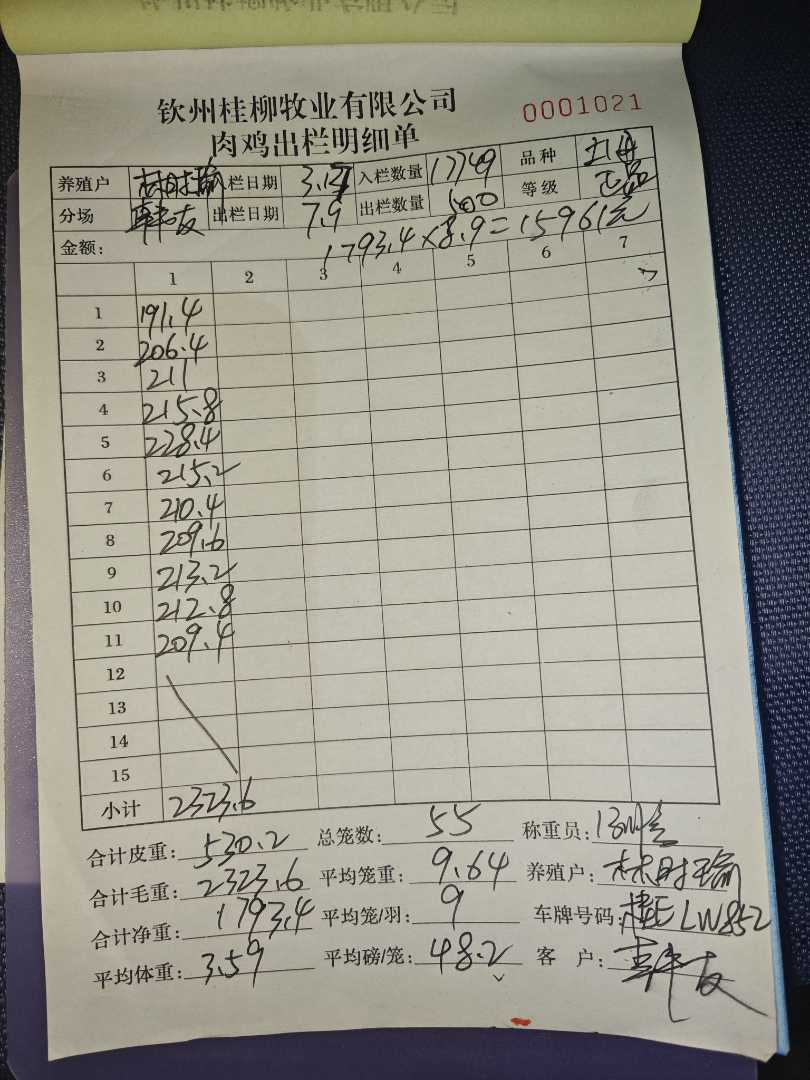 钦州桂柳牧业有限公司
0001021
肉鸡出栏明细单
养殖户 林时瑜 入栏日期 3.13 入栏数量 17749 品种 土
分场 出栏日期 7.9 出栏数量 500 等级 正品
金额: 1793.4×8.9=15961元
1 2 3 4 5 6 7
1 191.4
2 206.4
3 211
4 215.8
5 228.4
6 215.2
7 210.4
8 209.6
9 213.2
10 212.8
11 209.4
12
13
14
15
小计 2323.6
合计皮重: 530.2 总笼数: 55 称重员:
合计毛重: 2323.6 平均笼重: 9.64 养殖户: 林时瑜
合计净重: 1793.4 平均笼/羽: 9 车牌号码: 桂E LW852
平均体重: 3.59 平均磅/笼: 48.2 客 户: